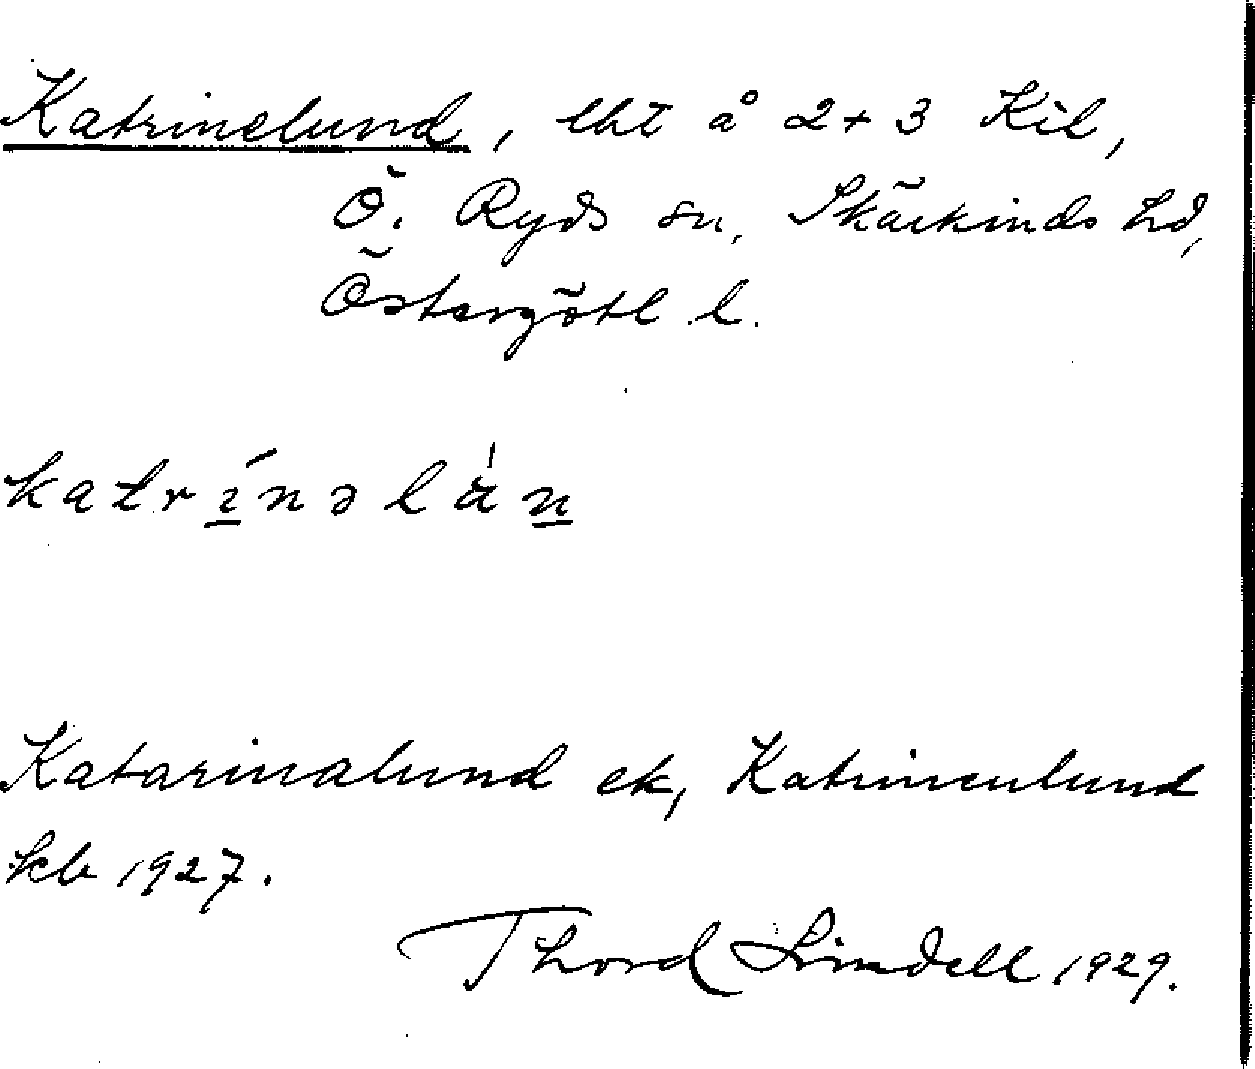 Katrinelund, lht å 2+3 Kil,
Ö. Ryds sn, Skärkinds hd,
Östergötl. l.
katrínəlàn
Katarinalund ek, Katrinelund
kb 1927.
Thord Lindell 1929.